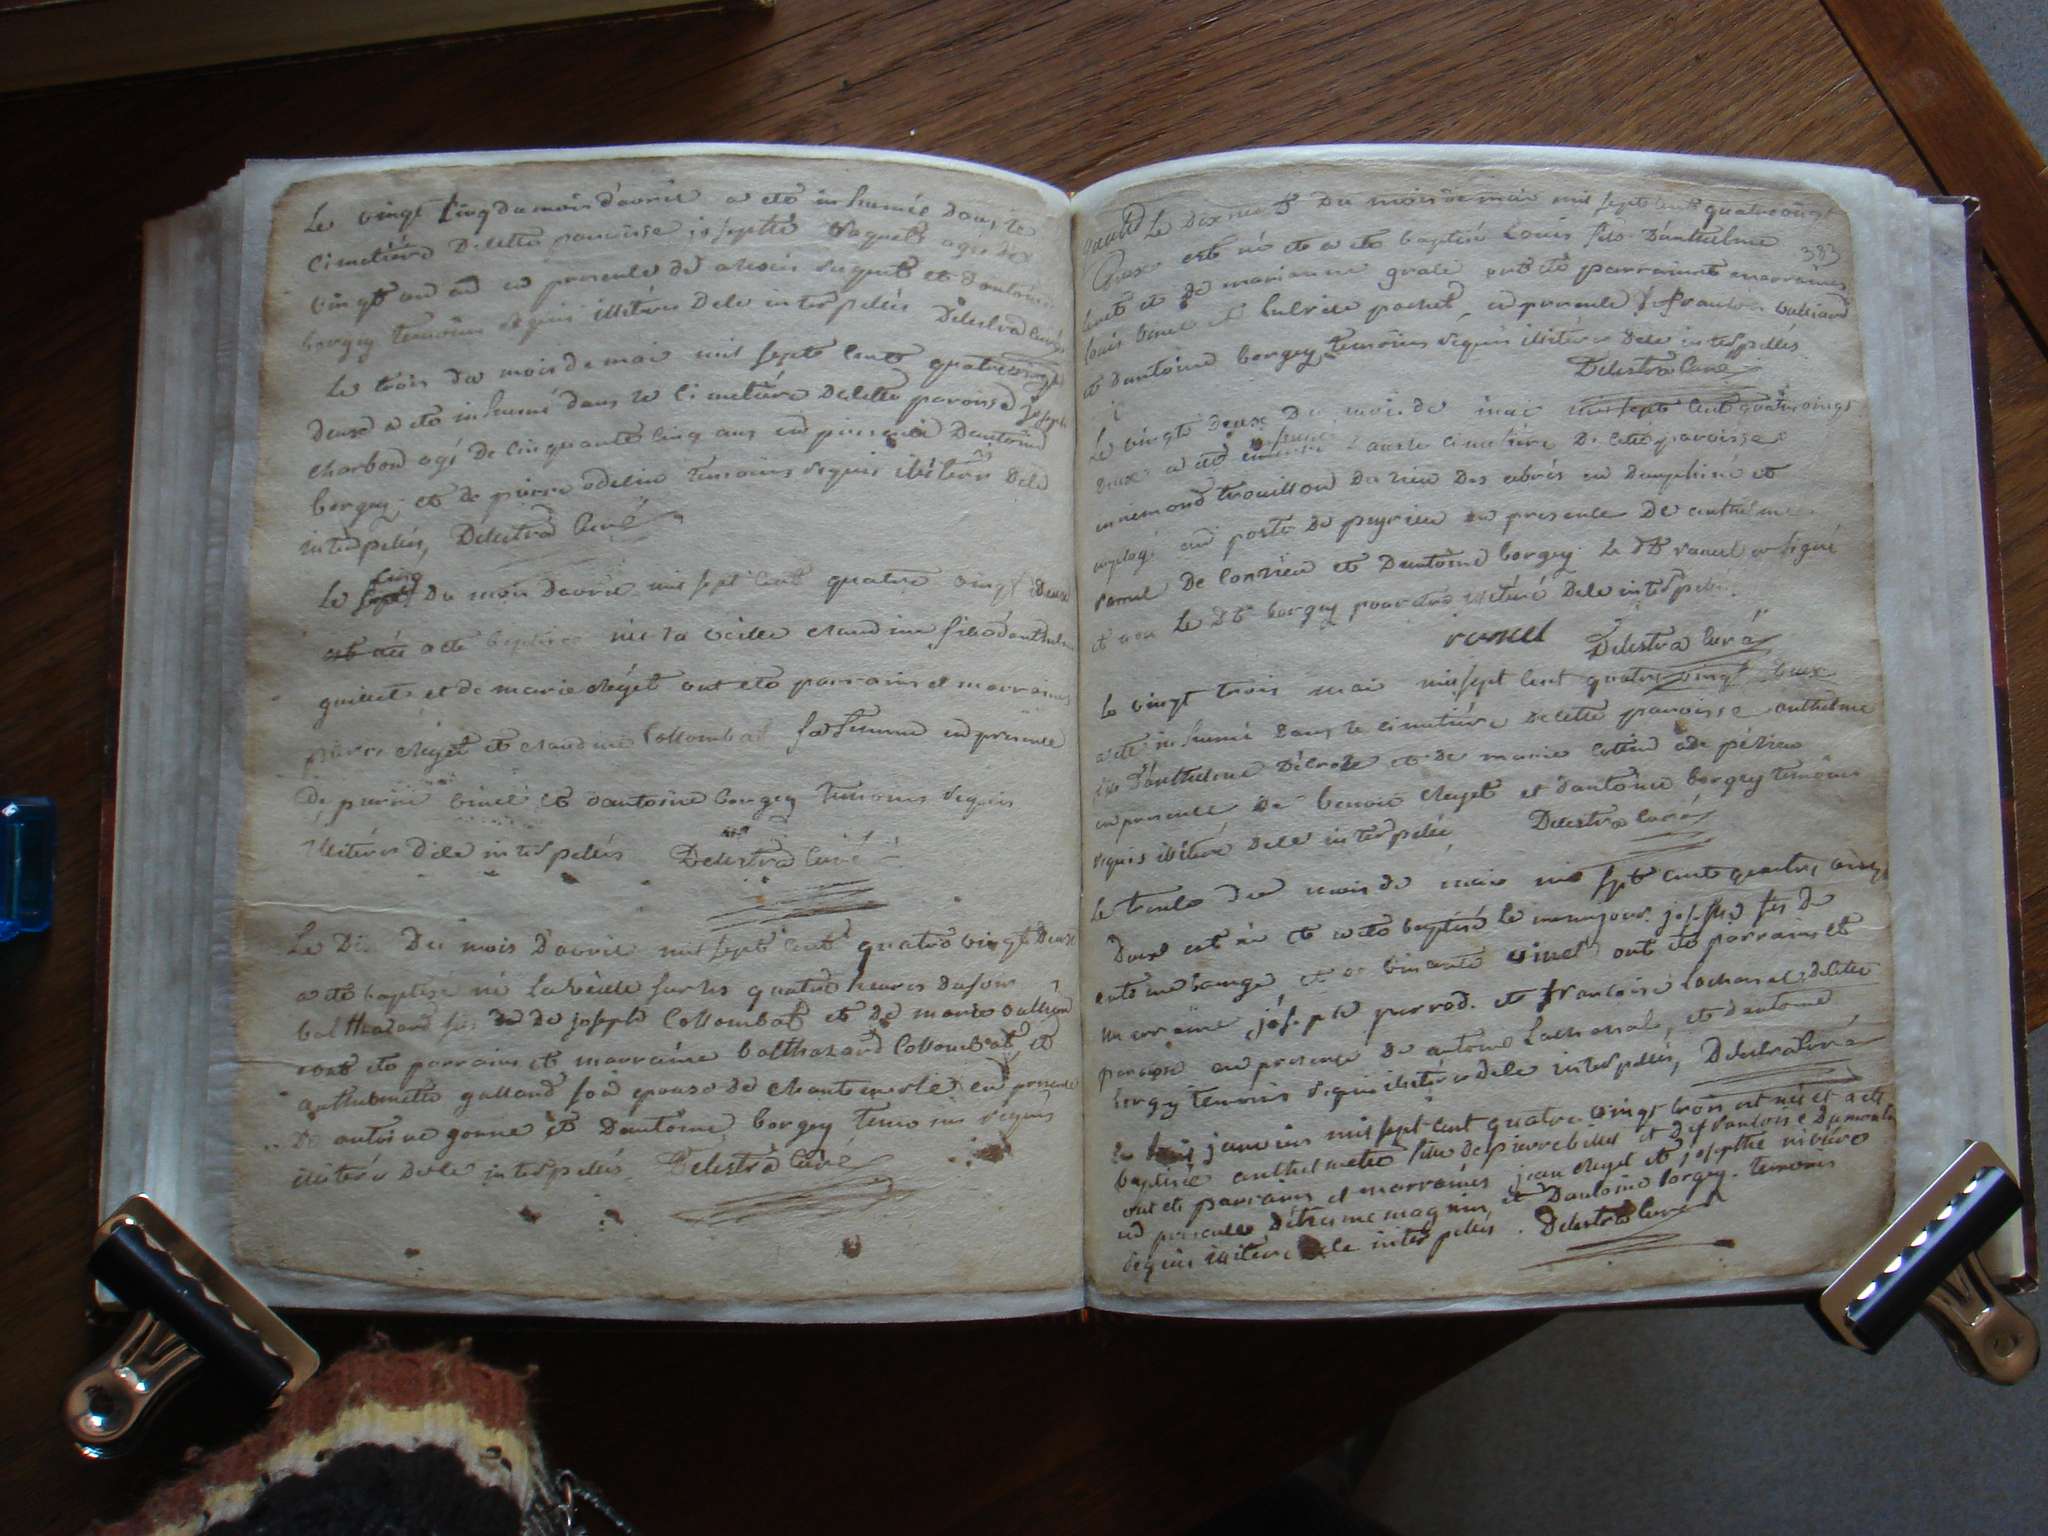 Le vingt cinq du mois d'avril a eté inhumée dans le
cimetiére de cette paroisse josephte vaguet agée de
vingt un an en presence de
borgey temoins requis illiteres de ce interpellés Delestra curé
Le trois du mois de mai mil sept cent quatre vingt
deux a eté inhumé dans le cimetiére de cette paroisse joseph
charbon agé de cinquante cinq ans en presence d'antoine
borgey et de pierre odelin temoins requis illitérés de ce
interpellés, Delestra curé
Le cinq du mois d'avril mil sept cent quatre vingt deux
est née a eté baptisée née la veille claudine fille d'anthelme
guinet et de marie cleyet ont eté parrains et marraines
pierre cleyet et claudine Collombat sa femme en presence
de pierre vinet et d'antoine borgey temoins requis
illitérés de ce interpellés Delestra curé
Le dix du mois d'avril mil sept cent quatre vingt deux
a eté baptisé né la veille sur les quatre heures du soir
balthazard fils de joseph Collombat et de marie
ont eté parrains et marraine balthazard Collombat et
anthelmette galland epouse de chantemerle en presence
de antoine gonne et d'antoine borgey temoins requis
illitérés de ce interpellés Delestra curé
Le dixneuf du mois de mai mil sept cent quatre vingt
383
est né et a eté baptisé Louis fils d'anthelme
et de marianne ont eté parrains et marraines
louis pochet, en presence de francois
et d'antoine borgey, temoins requis illitérés de ce interpellés
Delestra curé
Le vingt deux du mois de mai mil sept cent quatre vingt
deux a eté inhumé dans le cimetiére de cette paroisse
ennemond trouillon du lieu des abrés en dauphiné et
employé au poste de peyrieu en presence de anthelme
ramel de Conzieu et d'antoine borgey. Le dt ramel a signé
et non Le dt borgey pour etre illitéré de ce interpellé.
ramel Delestra curé
Le vingt trois mai mil sept cent quatre vingt deux
a eté inhumé dans le cimetiére de cette paroisse anthelme
fils d'anthelme décroze et de marie cottin de pézieu
en presence de benoit cleyet et d'antoine borgey temoins
requis illitéré de ce interpellé Delestra curé
Le trente du mois de mai mil sept cent quatre vingt
deux est né et a eté baptisé le meme jour joseph fils de
antoine et de vincente vinet ont eté parrains et
marraine joseph perrod et francoise Lachanal de cette
paroisse en presence de antoine Lachanal, et d'antoine
borgey temoins requis illitérés de ce interpellés, Delestra curé
janvier mil sept cent quatre vingt trois est née et a eté
baptisée anthelmette fille de pierre billet et de francoise dumonta
ont eté parrains et marraines jean cleyet et josephte
en presence d'etienne magnin et d'antoine borgey. temoins
requis illitéré de ce interpellés. Delestra curé